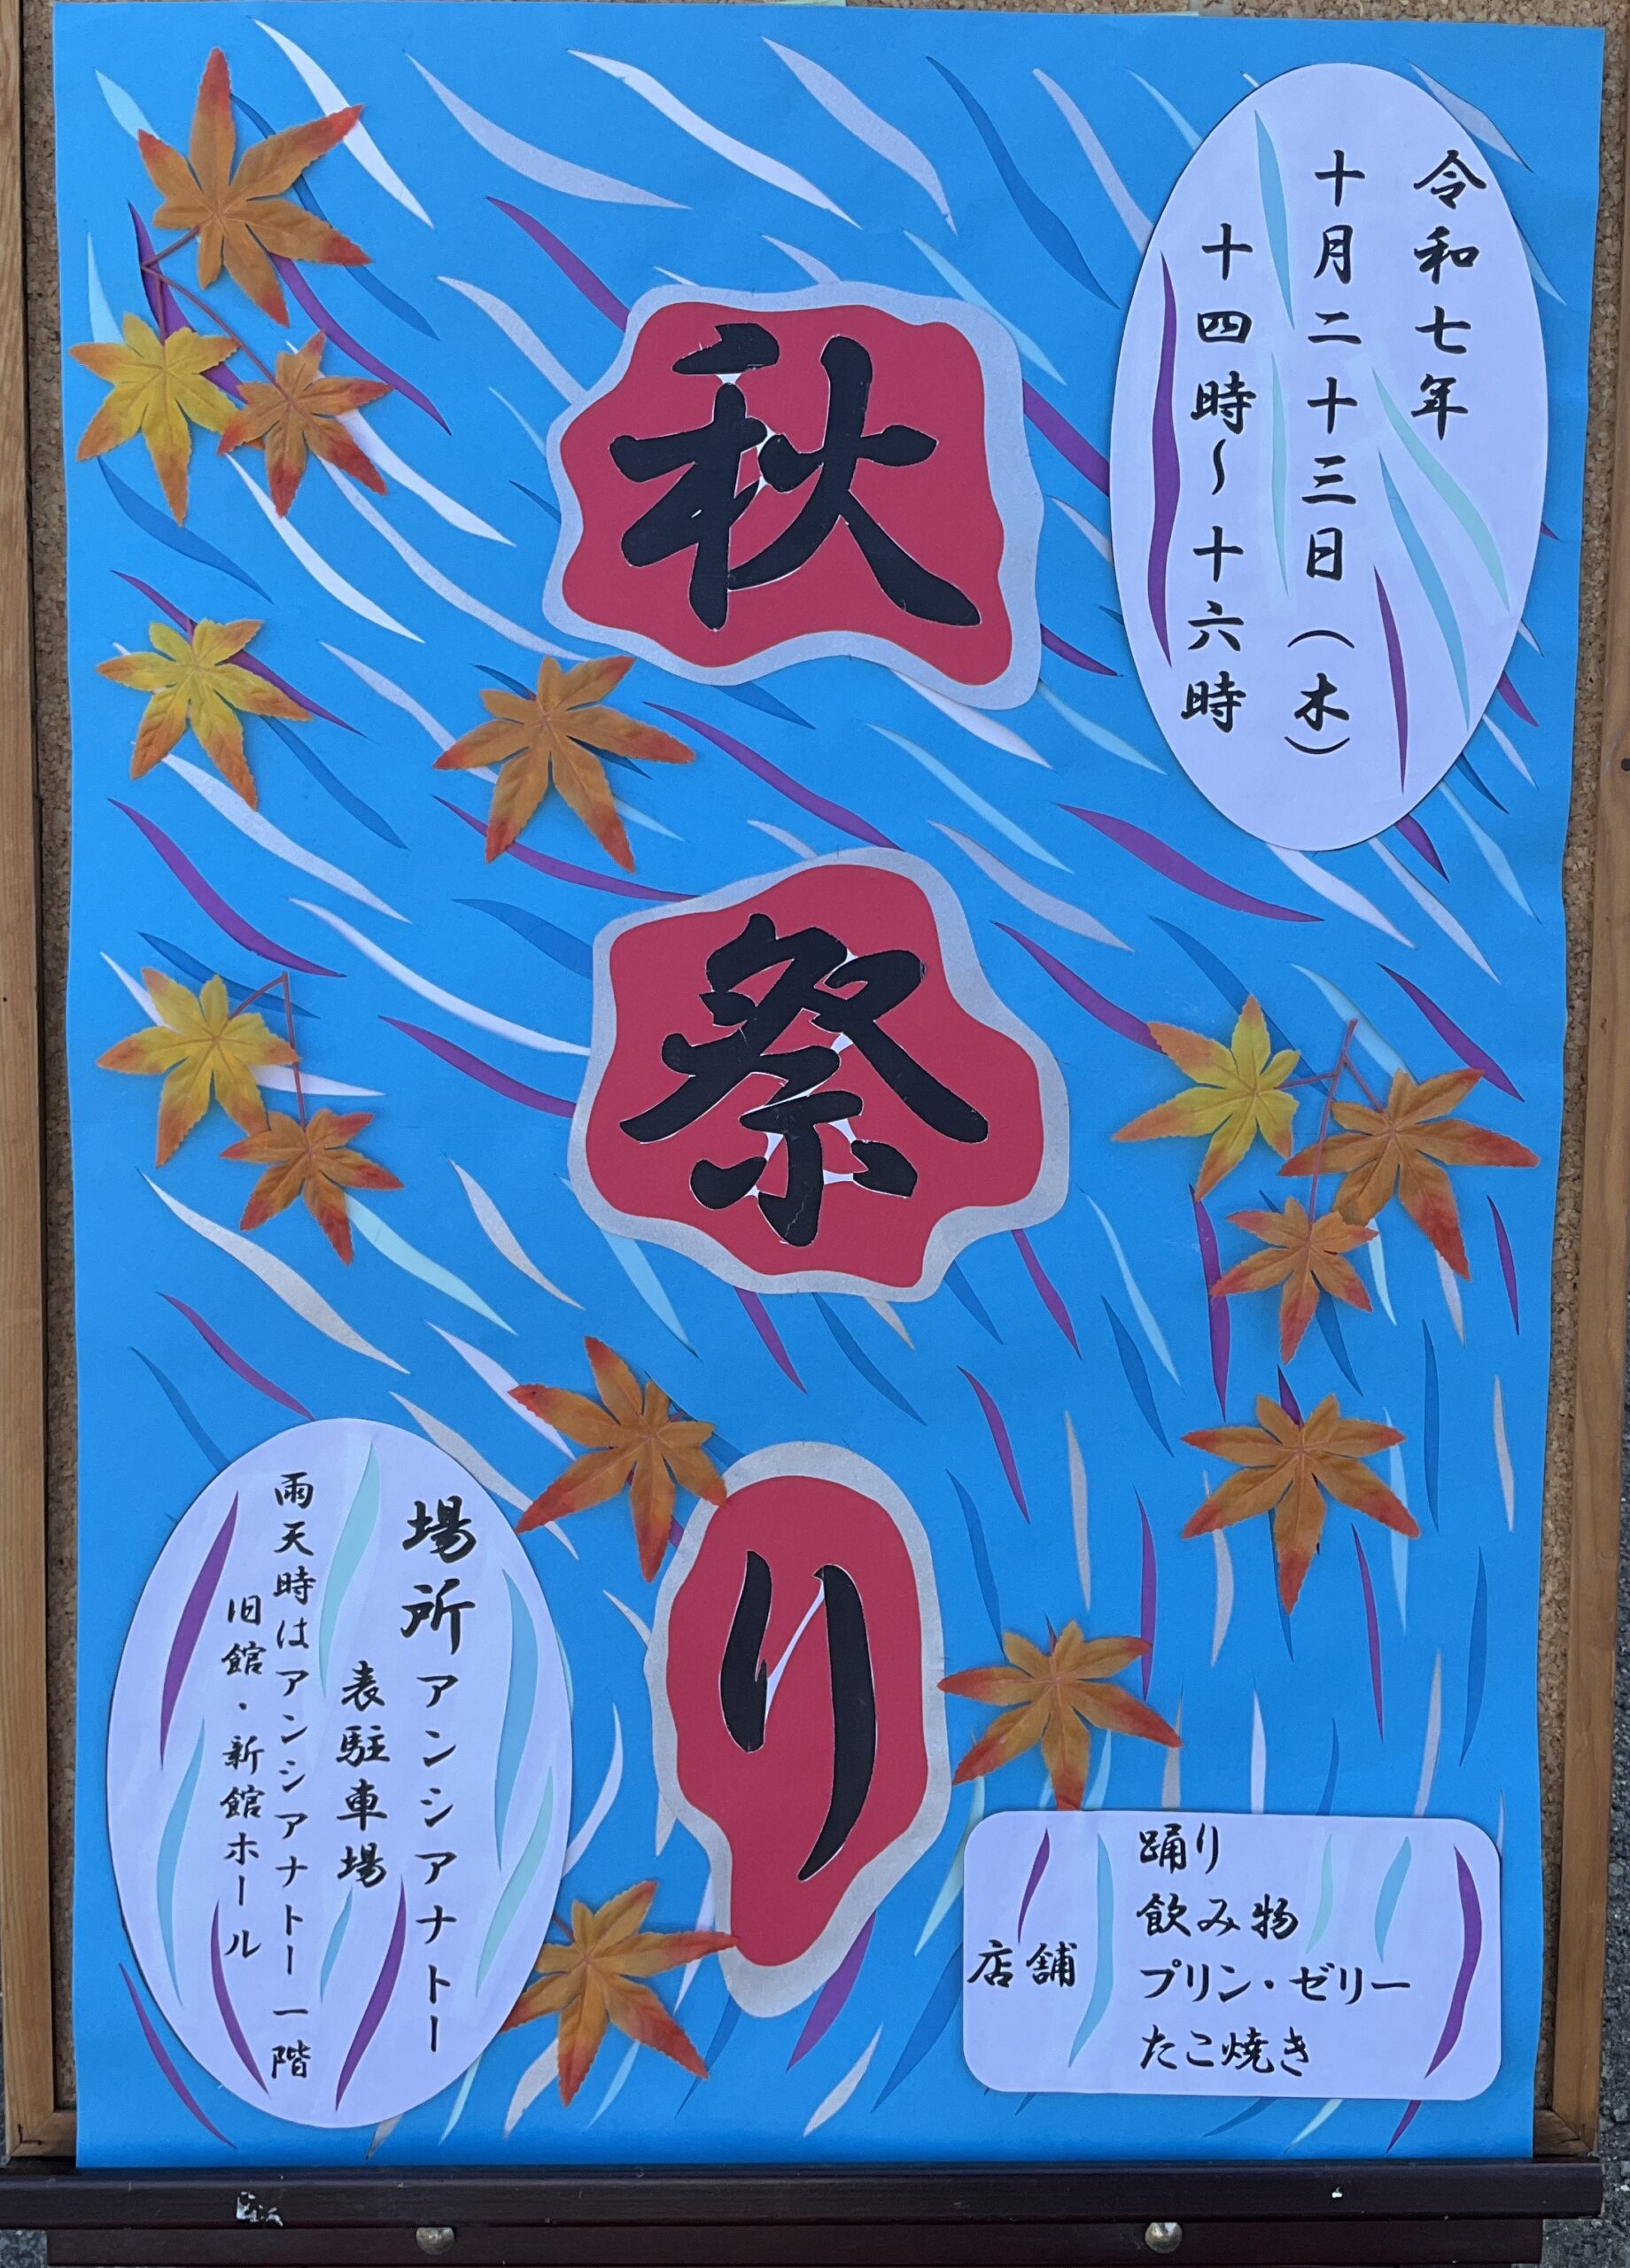 令和七年
十月二十三日(木)
十四時～十六時
秋祭り
場所アンシアナトー
表駐車場
雨天時はアンシアナトー一階
旧館・新館ホール
店舗
踊り
飲み物
プリン・ゼリー
たこ焼き